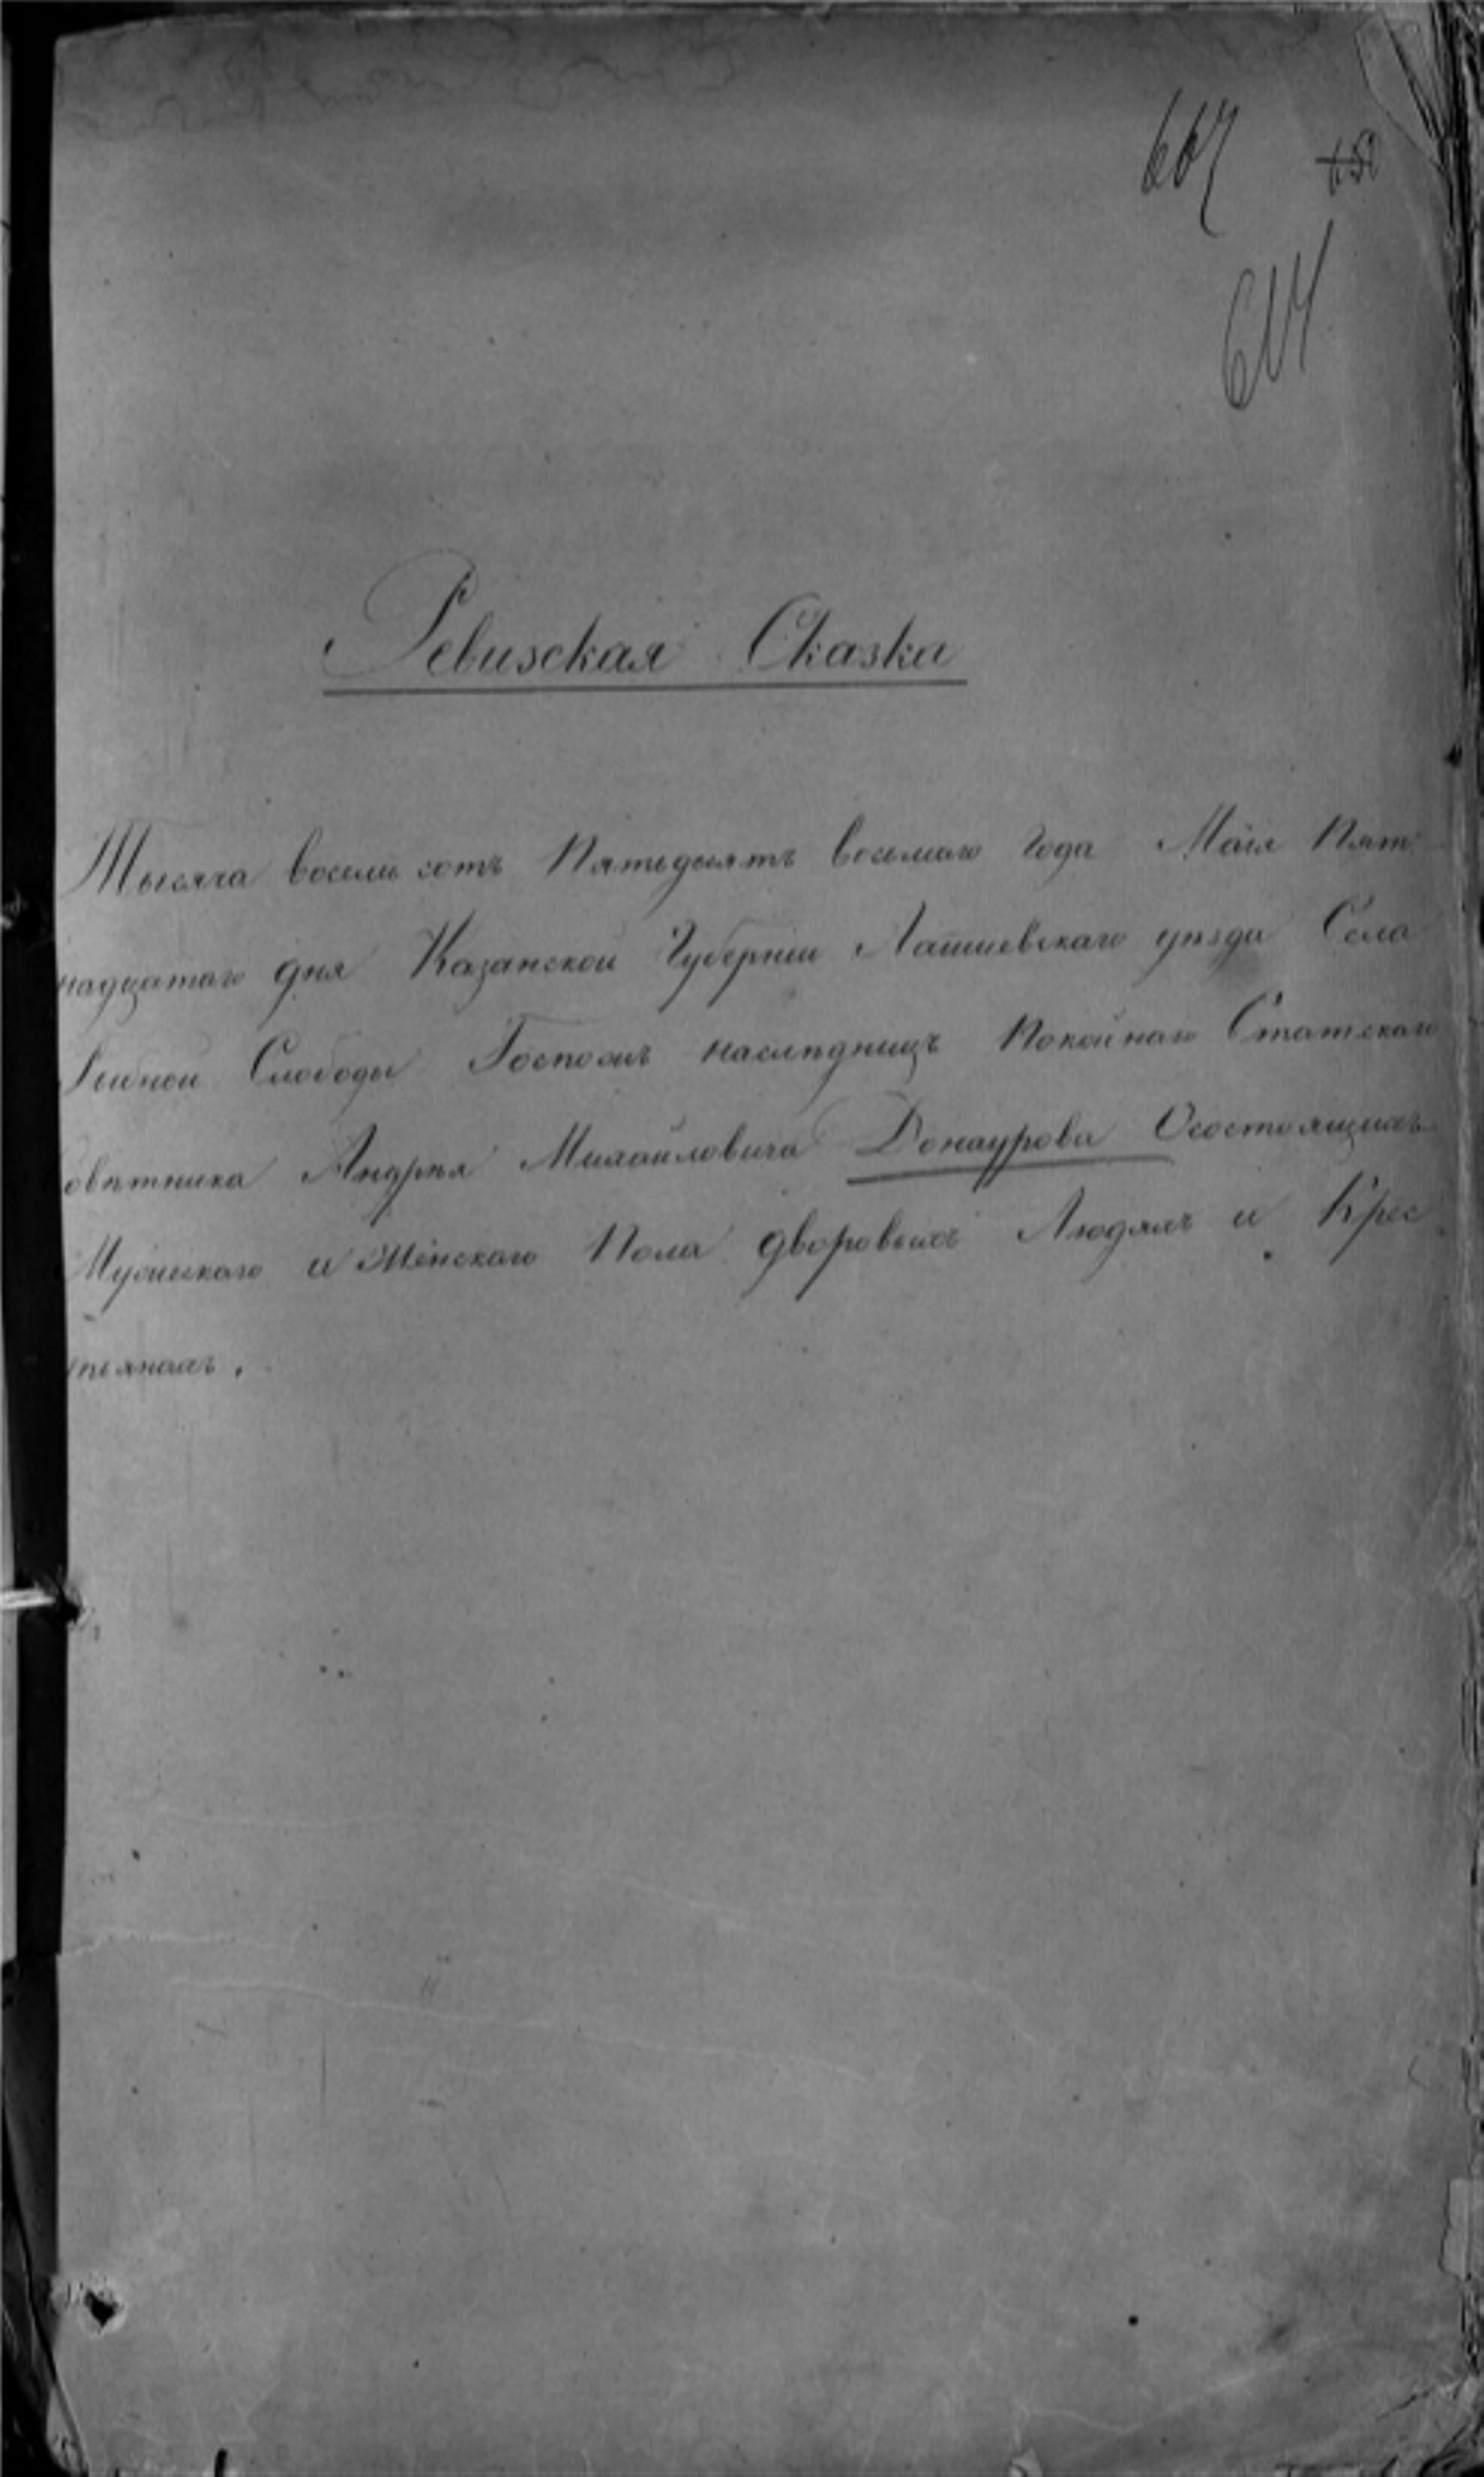 667
614
Ревизская Сказка
Тысяча восемь сотъ Пятьдесятъ восьмаго года Маія Пят
надцатаго дня Казанской Губерніи Лаишевскаго уѣзда Села
Рыбной Слободы Госпожъ наслѣдницъ Покойнаго Статскаго
овѣтника Андрея Михайловича Донаурова Осостоящихъ
Мужескаго и Женскаго Пола дворовыхъ Людяхъ и Крес
тьянахъ.